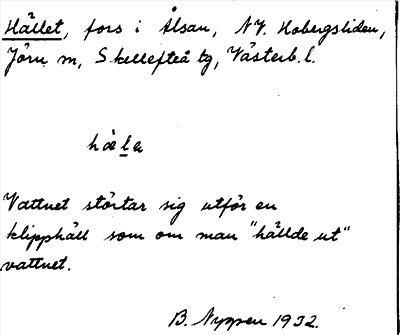 Hället, fors i Ålsån, NV. Hobergsliden,
Jörn sn, Skellefteå tg, Västerb. l.
hæla
Vattnet störtar sig utför en
klipphäll som om man "hällde ut"
vattnet.
B. Nyppen 1932.